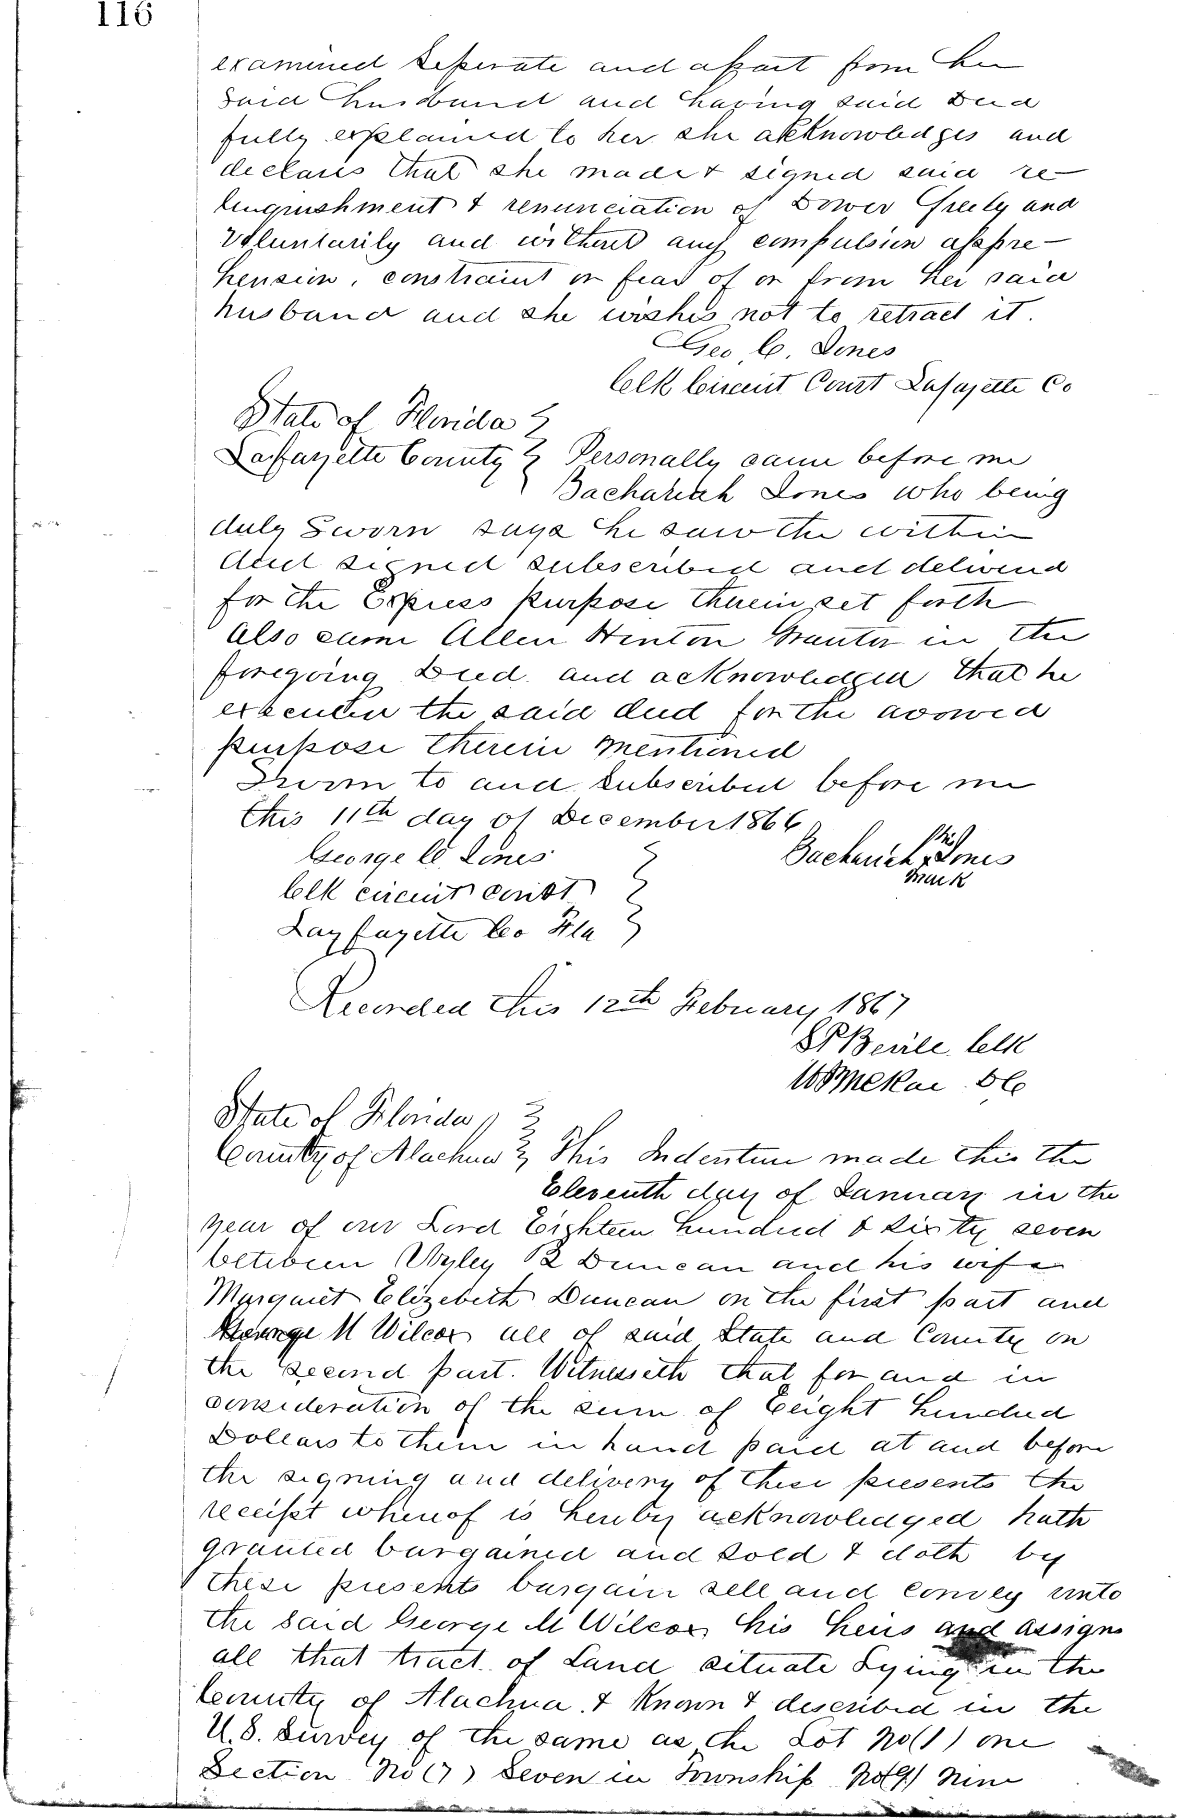 116
examined Seperate and apart from her
said husband and having said Deed
fully explained to her she acknowledges and
declares that she made & signed said re-
lenquishment & renunciation of Dower Freely and
Voluntarily and without any compulsion appre-
hension, constraint or fear of or from her said
husband and she wishes not to retract it.
Geo. C. Jones
Clk Circuit Court Lafayette Co
State of Florida
Lafayette County Personally came before me
Zachariah Jones who being
duly Sworn says he saw the within
deed signed subscribed and delivered
for the Express purpose therein set forth
Also came Allen Hinton Grantor in the
foregoing Deed and acknowledged that he
executed the said deed for the avowed
purpose therein mentioned
Sworn to and Subscribed before me
this 11th day of December 1866
George C Jones Zacheriah his x Jones
mark
Clk circuit court
Layfayette Co Fla
Recorded this 12th February 1867
S P Bevile Clk
DC
State of Florida
County of Alachua This Indenture made this the
Eleventh day of January in the
year of our Lord Eighteen hundred & Sixty seven
between Wyley B Duncan and his wife
Margaret Elizebeth Duncan on the first part and
George M Wilcox all of said State and County on
the second part. Witnesseth that for and in
consideration of the sum of Eeight hundred
Dollars to them in hand paid at and before
the signing and delivery of these presents the
receipt whereof is hereby acknowledged hath
granted bargained and sold & doth by
these presents bargain sell and convey unto
the said George M Wilcox his heirs and assigns
all that tract of Land situate Lying in the
County of Alachua & Known & described in the
U.S. Survey of the same as the Lot No (1) one
Section No (7) Seven in Township No (9) Nine